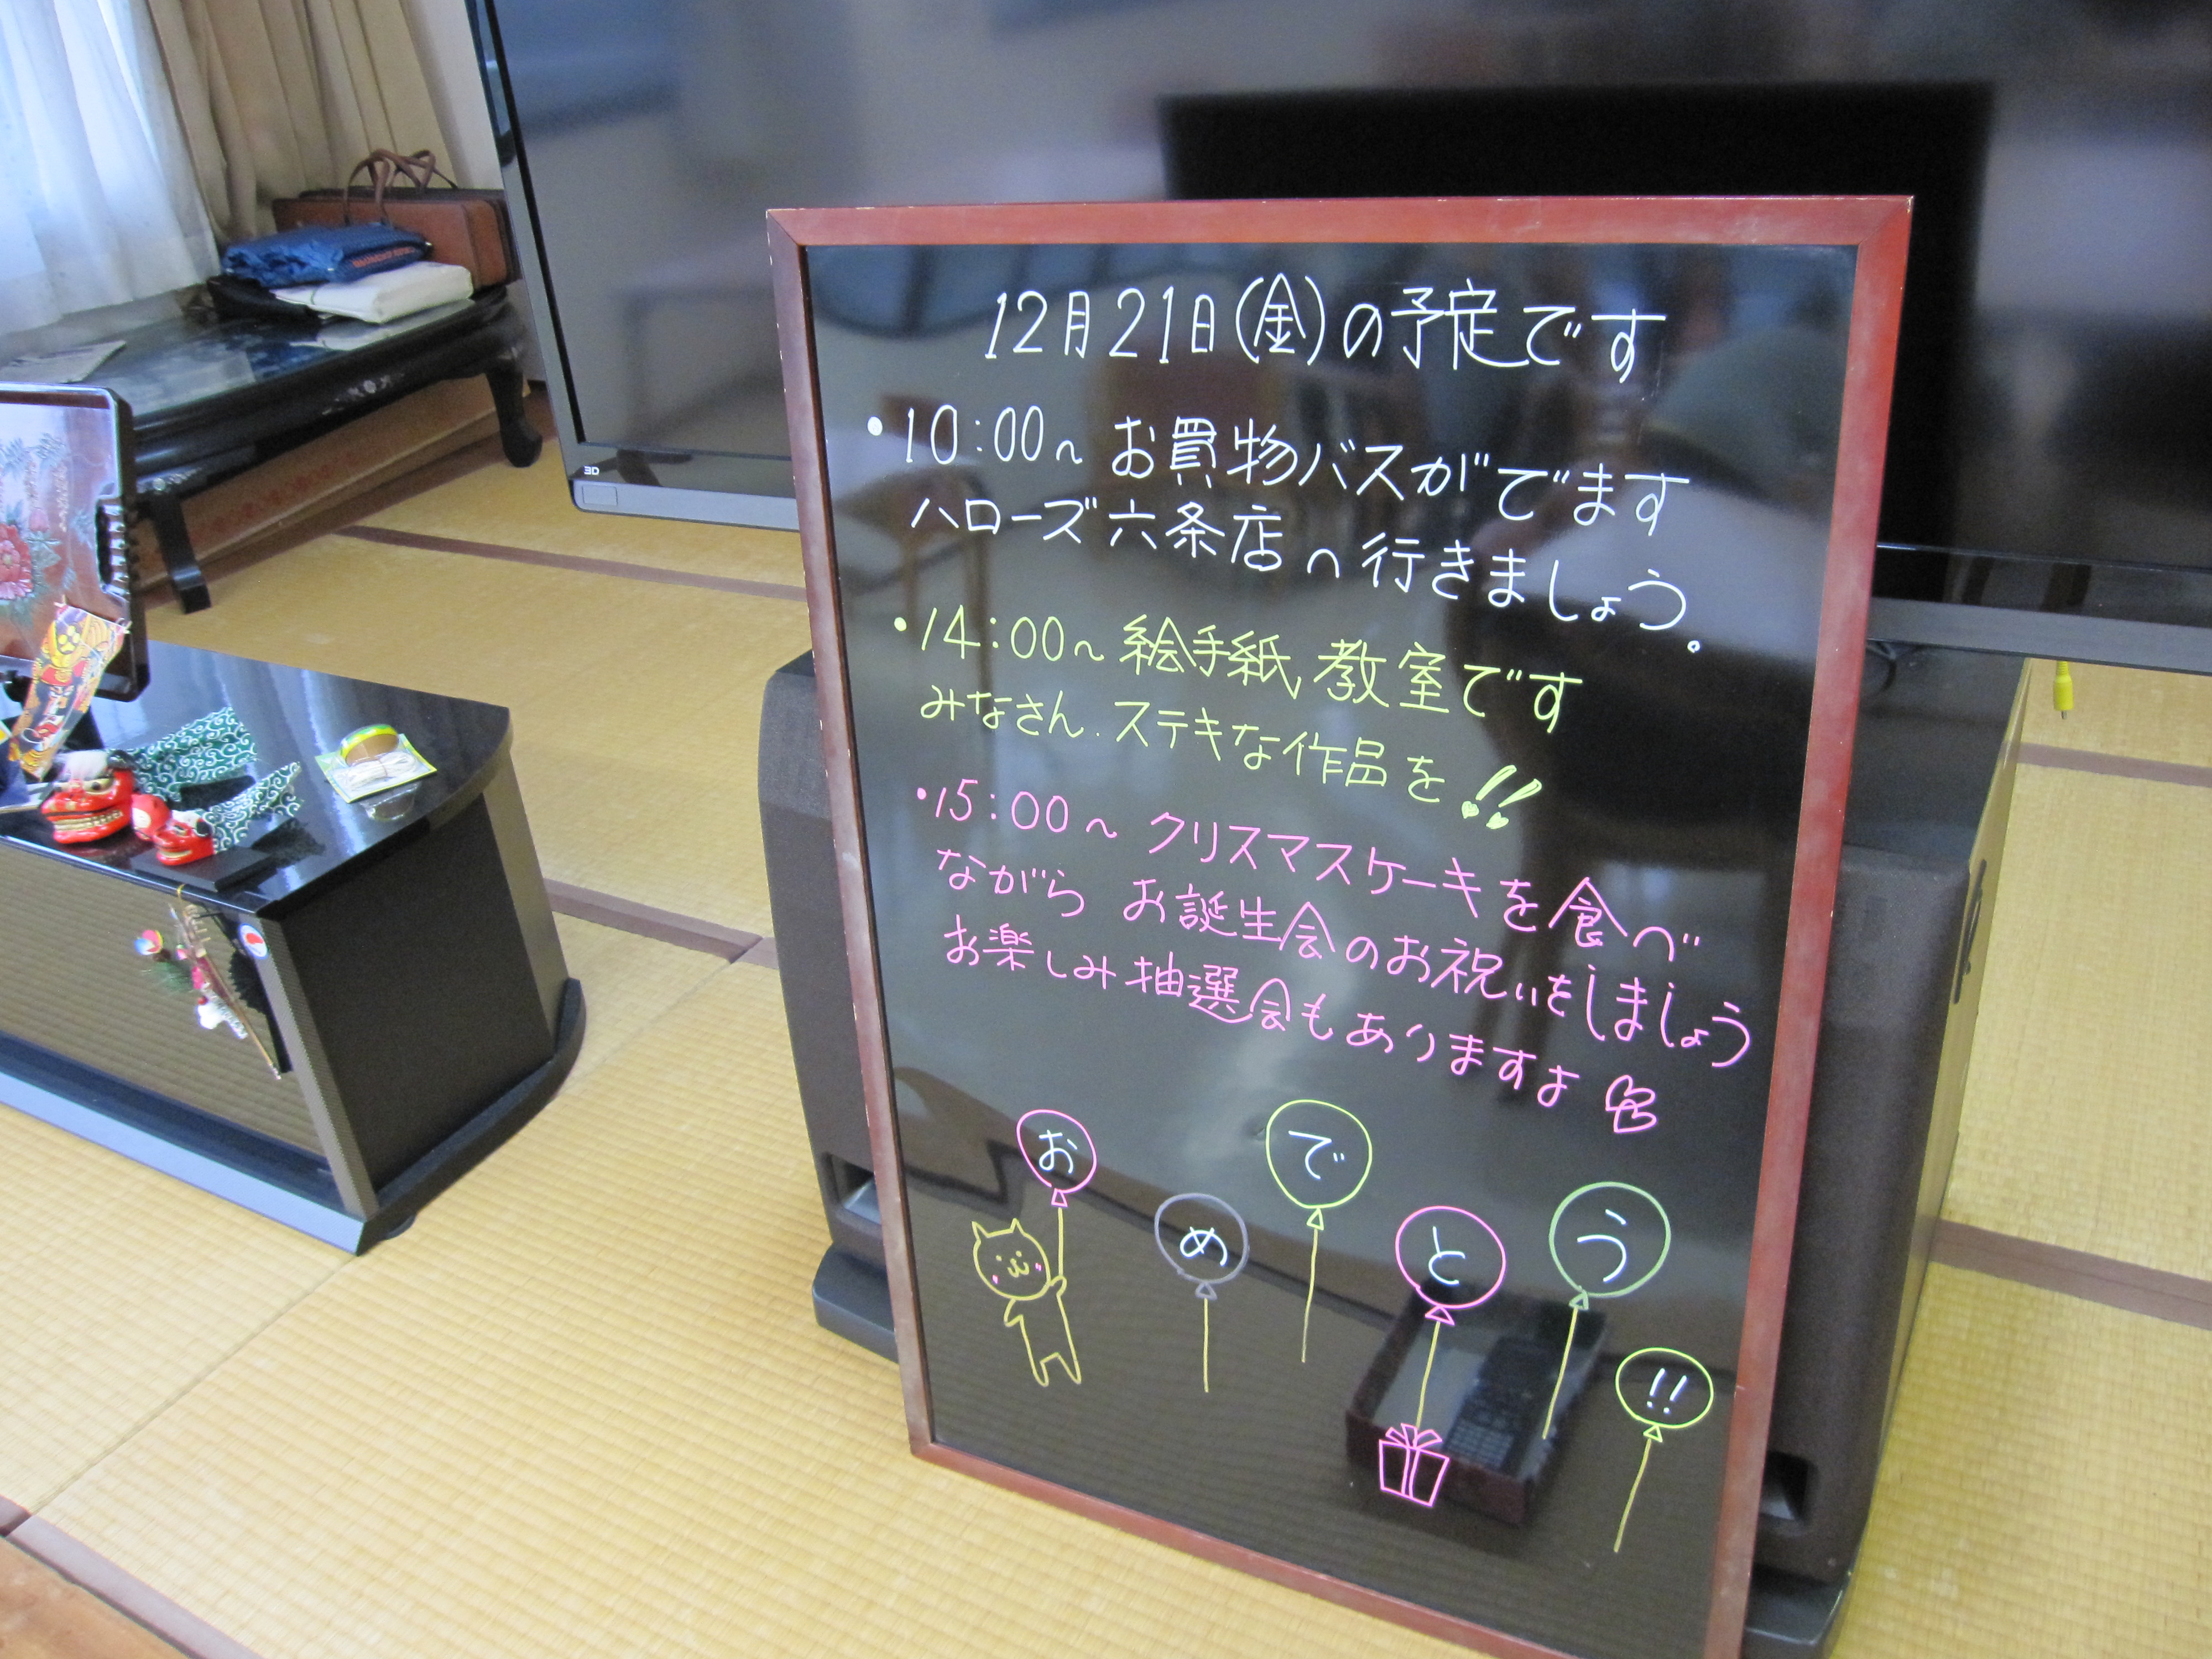 3D
12月21日(金)の予定です
・10:00〜お買物バスがでます
ハローズ六条店へ行きましょう。
・14:00〜絵手紙教室です
みなさん、ステキな作品を!!
・15:00〜クリスマスケーキを食べ
ながらお誕生会のお祝いをしましょう
お楽しみ抽選会もありますよ
おめでとう!!